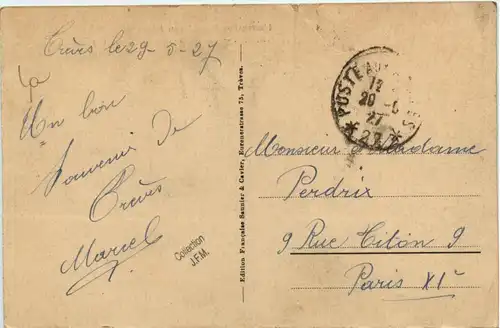 Trèves le 29-5-27
Un bon
souvenir de
Trèves
Marcel
Collection
J.F.M.
Edition Française Saunier & Cavier, Eurenerstrasse 75, Trèves.
POSTE AUX ARMÉES
12
29 - 5
27
* 237 *
Monsieur & Madame
Perdrix
9 Rue Titon 9
Paris XIe